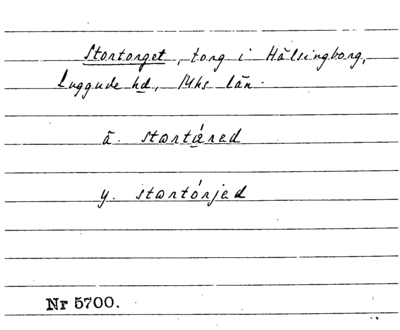 Stortorget, torg i Hälsingborg,
Luggude hd, Mhs län.
ä. stωrtáred
y. stωrtórjed
Nr 5700.